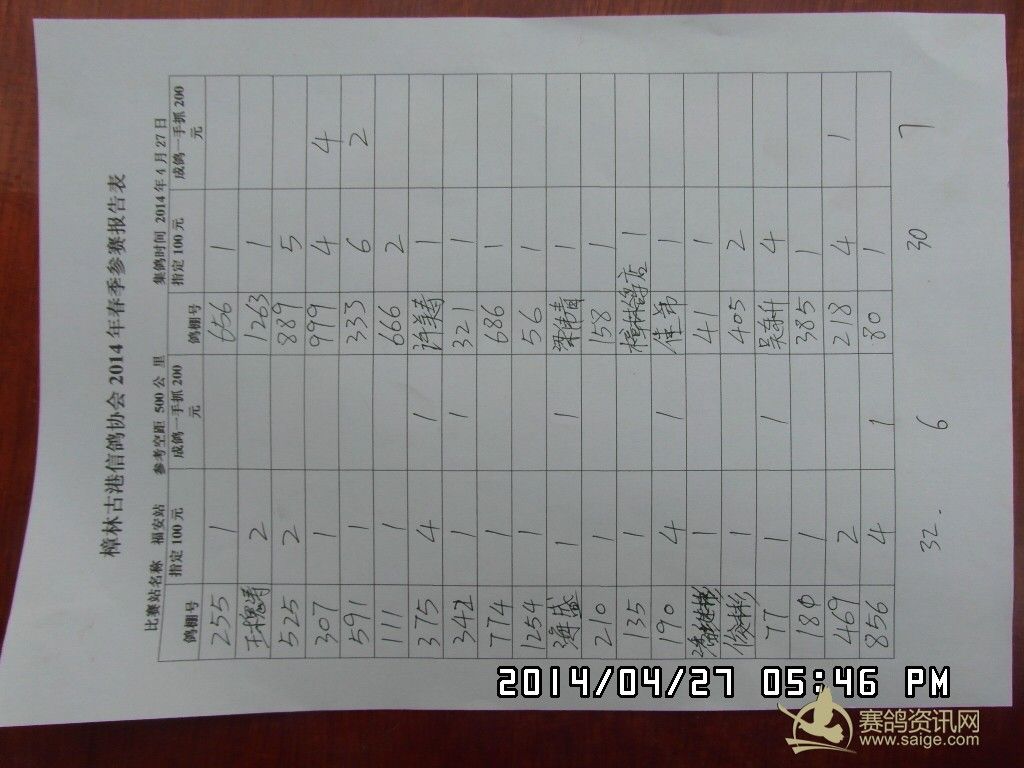 樟林古港信鸽协会 2014 年春季参赛报告表
比赛站名称 福安站 参考空距 500 公 里 集鸽时间 2014 年 4 月 27 日
鸽棚号 指定 100 元 成鸽一手抓 200 元 鸽棚号 指定 100 元 成鸽一手抓 200 元
255 1 656 1
2 1263 1
525 2 889 5
307 1 999 4 4
591 1 333 6 2
111 1 666 2
375 4 1 1
342 1 1 321 1
774 1 686 1
1254 1 56 1
海盛 1 1 1
210 1 158 1
135 1 樟林鸽店 1
190 4 1 1
1 41 1
俊彬 1 405 2
77 1 1 4
180 1 385 1
469 2 218 4 1
856 4 1 80 1
32. 6 30 7
2014/04/27 05:46 PM
赛鸽资讯网
www.saige.com